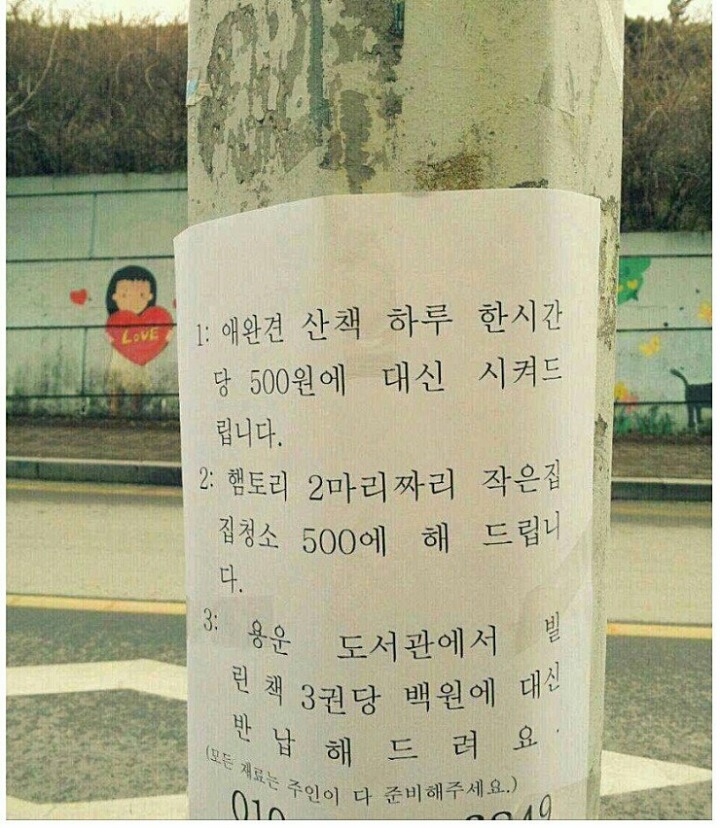 LOVE
1: 애완견 산책 하루 한시간
당 500원에 대신 시켜드
립니다.
2: 햄토리 2마리짜리 작은집
집청소 500에 해 드립니
다.
3: 용운 도서관에서 빌
린 책 3권당 백원에 대신
반 납 해 드 려 요 .
(모든 재료는 주인이 다 준비해주세요.)
010